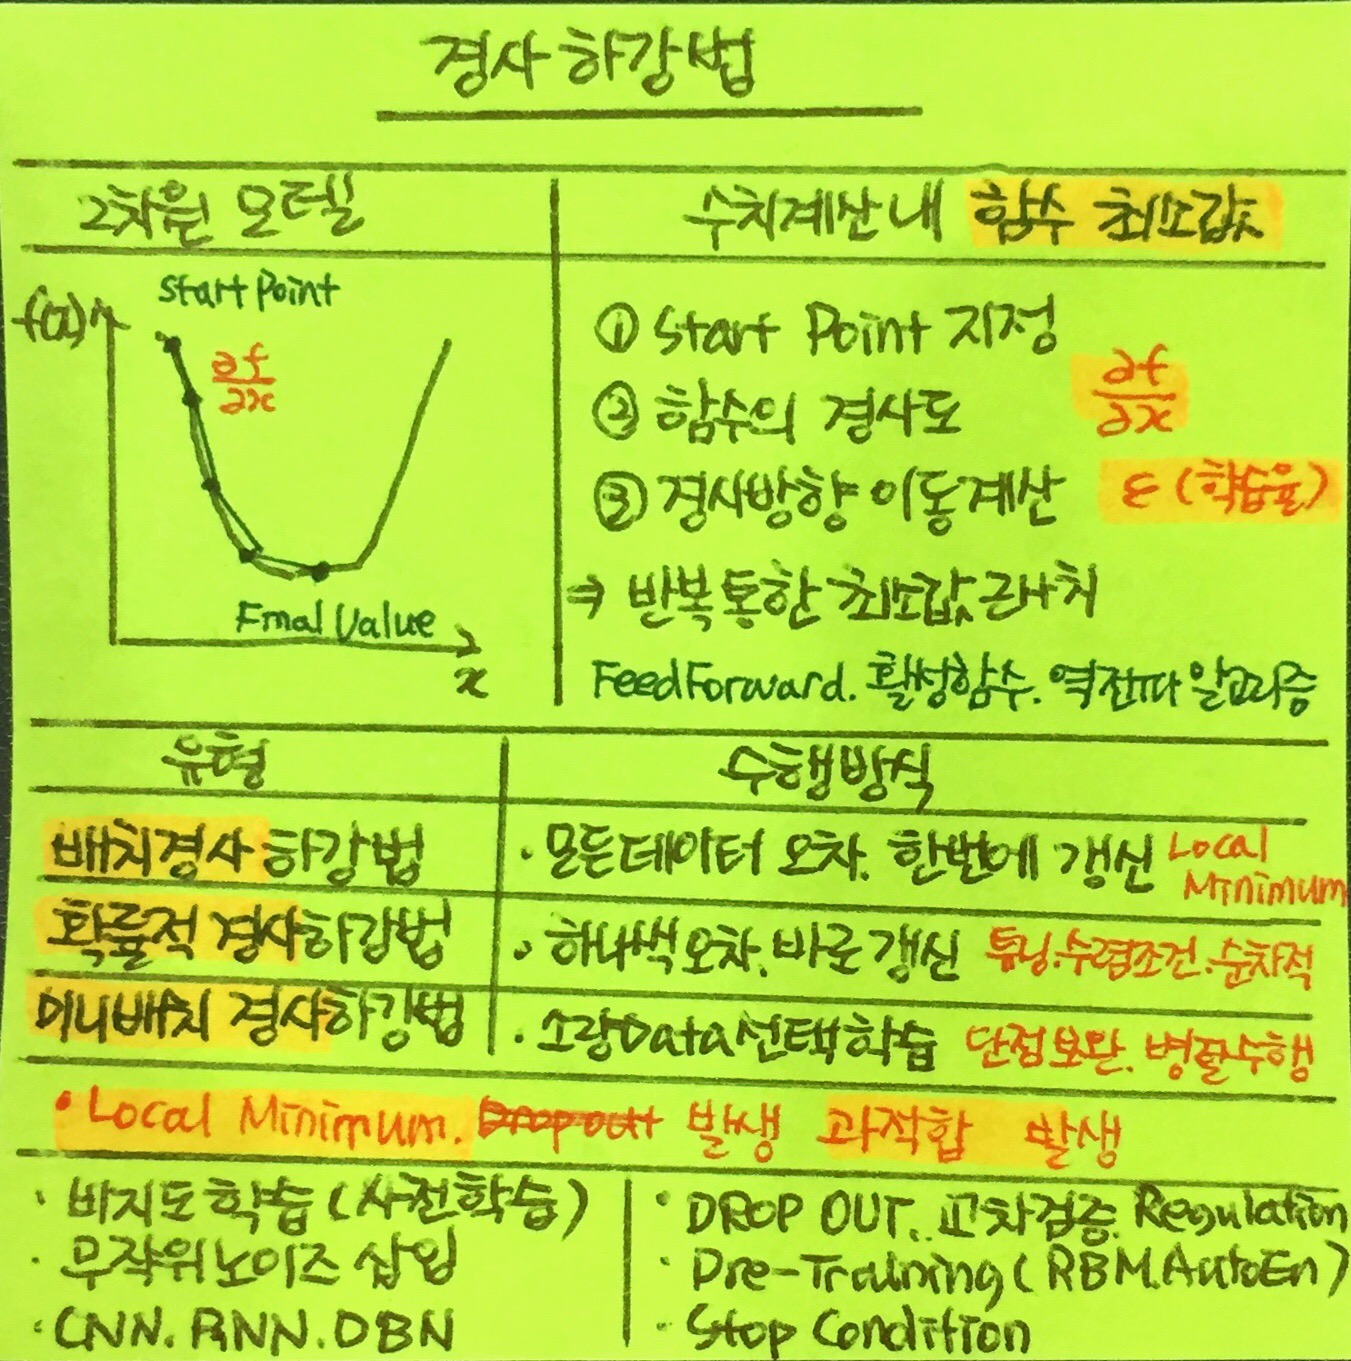 경사 하강법
2차원 모델
수치계산 내 함수 최소값
f(x)
Start Point
∂f
∂x
Final Value
x
① Start Point 지정
② 함수의 경사도 ∂f/∂x
③ 경사방향 이동계산 ε (학습율)
⇒ 반복 통한 최소값 근사치
FeedForward. 활성함수. 역전파 알고리즘
유형
수행방식
배치경사 하강법
· 모든데이터 오차. 한번에 갱신 Local Minimum
확률적 경사하강법
· 하나씩 오차. 바로 갱신 튜닝.수렴조건.순차적
미니배치 경사하강법
· 소량Data선택학습 단점보완. 병렬수행
• Local Minimum. Drop out 발생 과적합 발생
· 비지도 학습 (사전학습)
· 무작위 노이즈 삽입
· CNN. RNN. DBN
· DROP OUT.. 교차검증. Regulation
· Pre-Training (RBM.AutoEn)
· Stop Condition